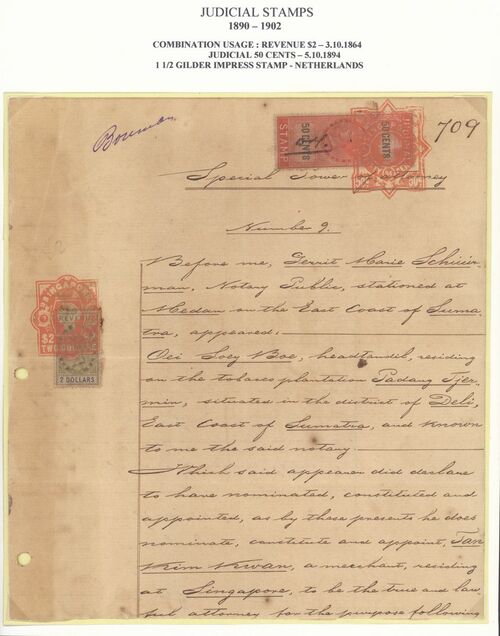 JUDICIAL STAMPS
1890 – 1902
COMBINATION USAGE : REVENUE $2 – 3.10.1864
JUDICIAL 50 CENTS – 5.10.1894
1 1/2 GILDER IMPRESS STAMP - NETHERLANDS
Bouman
STAMP
50 CENTS
50 CENTS
709
Special Power Attorney
Number 9.
Before me, Gerrit Marie Schuur-
man, Notary Public, stationed at
Medan on the East Coast of Suma
tra, appeared:
Oei Soey Boe, headtandil, residing
on the tobacco plantation Padang Tjer-
min, situated in the district of Deli,
East Coast of Sumatra, and known
to me the said notary.
Which said appearer did declare
to have nominated, constituted and
appointed, as by these presents he does
nominate, constitute and appoint, Tan
Kim Kwan, a merchant, residing
at Singapore, to be the true and law
ful attorney for the purpose following
SINGAPORE
REVENUE
$2
TWO DOLLARS
2 DOLLARS